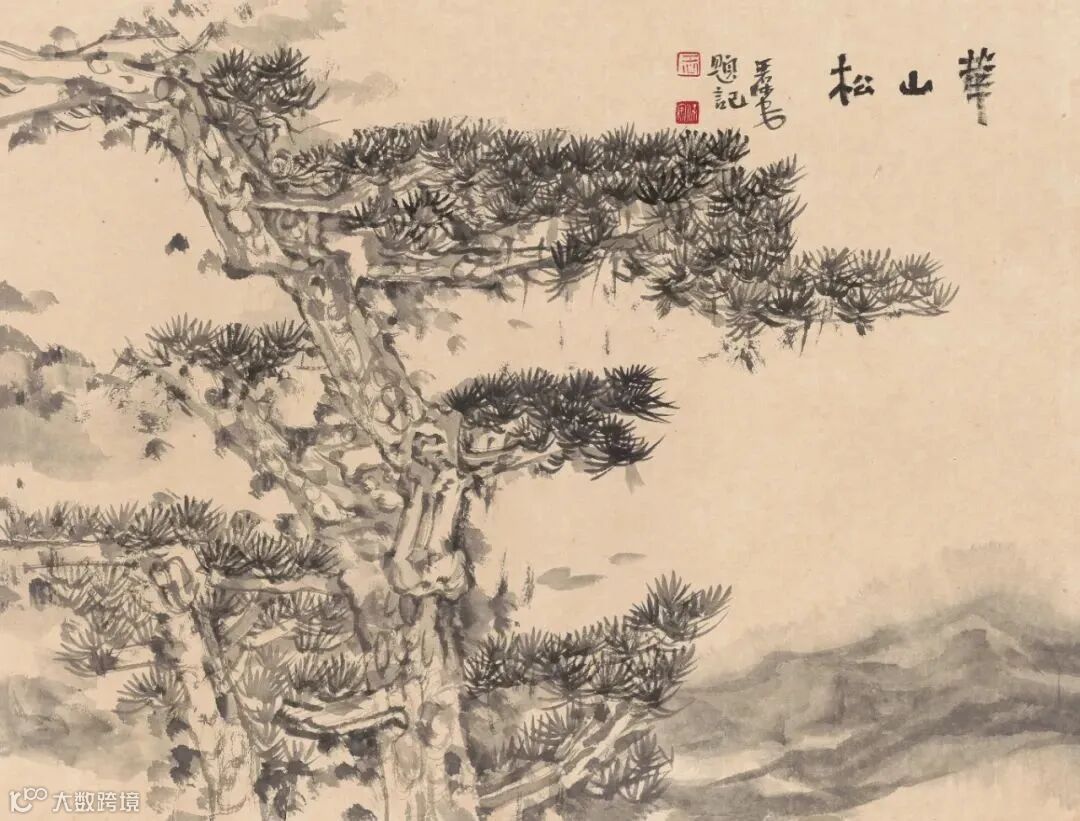 華山松
題記
大数跨境